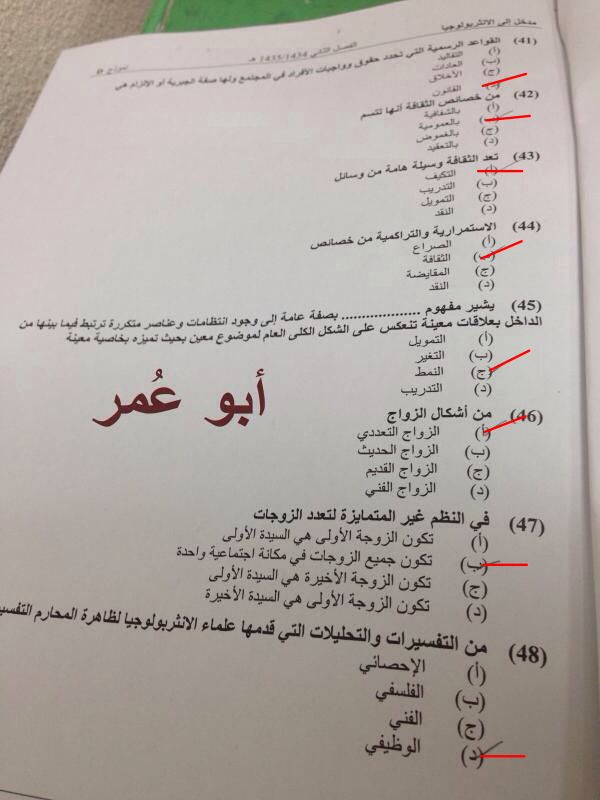 مدخل إلى الانثربولوجيا
الفصل الثاني 1435/1434 هـ
نموذج D
(41) القواعد الرسمية التي تحدد حقوق وواجبات الأفراد في المجتمع ولها صفة الجبرية أو الإلزام هي
(أ) التقاليد
(ب) العادات
(ج) الأخلاق
(د) القانون
(42) من خصائص الثقافة أنها تتسم
(أ) بالشفافية
(ب) بالعمومية
(ج) بالغموض
(د) بالتعقيد
(43) تعد الثقافة وسيلة هامة من وسائل
(أ) التكيف
(ب) التدريب
(ج) التمويل
(د) النقد
(44) الاستمرارية والتراكمية من خصائص
(أ) الصراع
(ب) الثقافة
(ج) المقايضة
(د) النقد
(45) يشير مفهوم .................... بصفة عامة إلى وجود انتظامات وعناصر متكررة ترتبط فيما بينها من
الداخل بعلاقات معينة تنعكس على الشكل الكلى العام لموضوع معين بحيث تميزه بخاصية معينة
(أ) التمويل
(ب) التغير
(ج) النمط
(د) التدريب
أبو عُمر
(46) من أشكال الزواج
(أ) الزواج التعددي
(ب) الزواج الحديث
(ج) الزواج القديم
(د) الزواج الفني
(47) في النظم غير المتمايزة لتعدد الزوجات
(أ) تكون الزوجة الأولى هي السيدة الأولى
(ب) تكون جميع الزوجات في مكانة اجتماعية واحدة
(ج) تكون الزوجة الأخيرة هي السيدة الأولى
(د) تكون الزوجة الأولى هي السيدة الأخيرة
(48) من التفسيرات والتحليلات التي قدمها علماء الانثربولوجيا لظاهرة المحارم
(أ) الإحصائي
(ب) الفلسفي
(ج) الفني
(د) الوظيفي